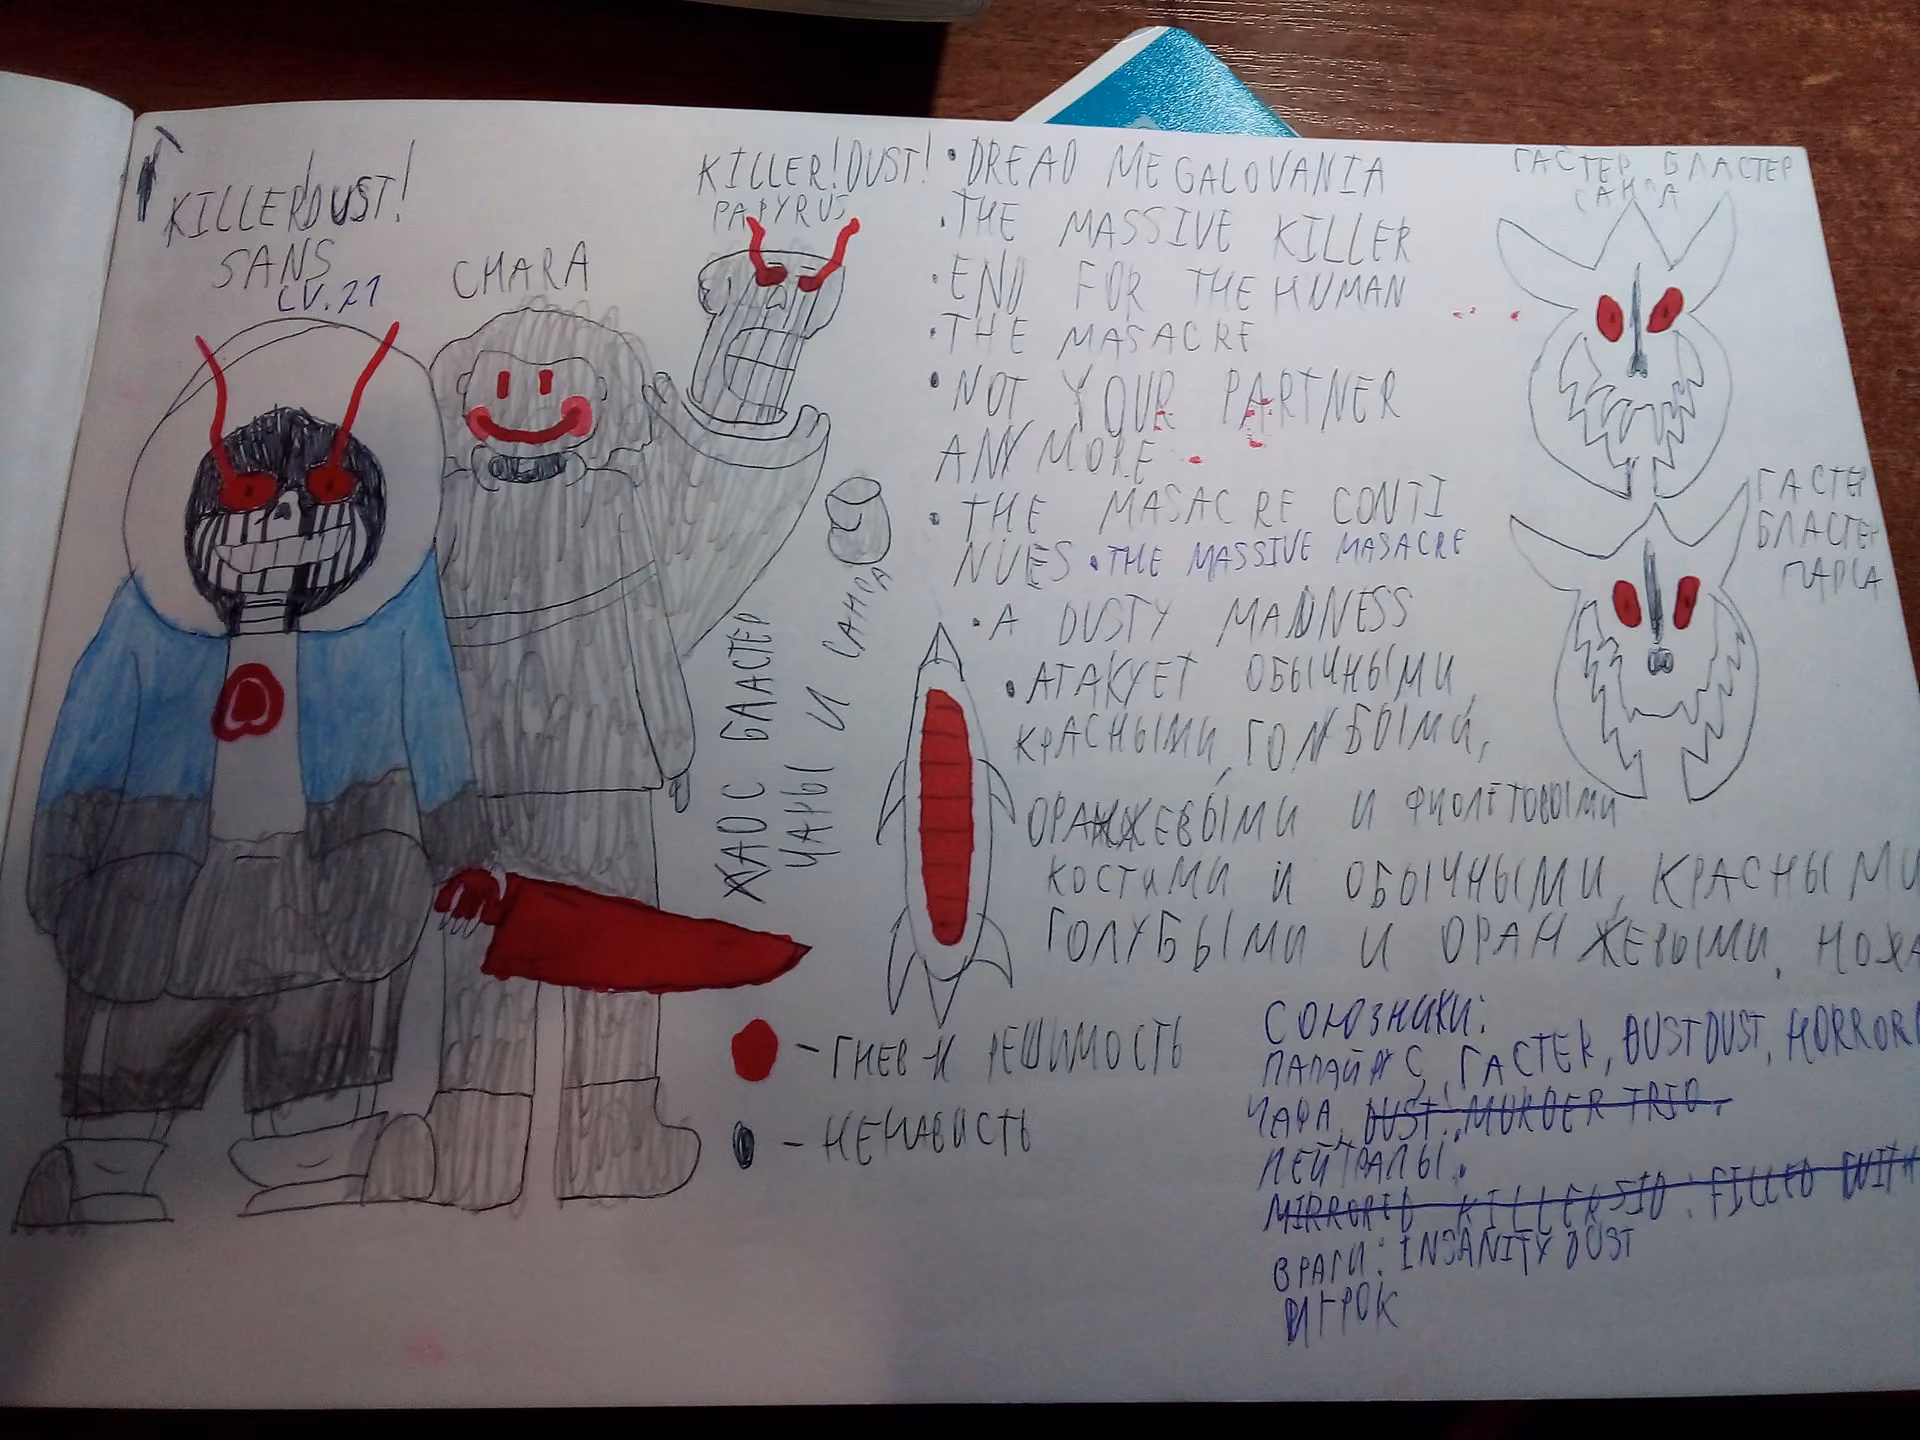 KILLER!DUST!
SANS
LV.21
CHARA
KILLER!DUST!
PAPYRUS
• DREAD MEGALOVANIA
• THE MASSIVE KILLER
• END FOR THE HUMAN
• THE MASACRE
• NOT YOUR PARTNER
ANYMORE
• THE MASACRE CONTI
NUES • THE MASSIVE MASACRE
• A DUSTY MADNESS
• АТАКУЕТ ОБЫЧНЫМИ,
КРАСНЫМИ, ГОЛУБЫМИ,
ОРАНЖЕВЫМИ И ФИОЛЕТОВЫМИ
КОСТЯМИ И ОБЫЧНЫМИ, КРАСНЫМИ
ГОЛУБЫМИ И ОРАНЖЕВЫМИ, НОЖА
ГАСТЕР БЛАСТЕР
САНСА
ГАСТЕР
БЛАСТЕР
ПАПСА
ХАОС БЛАСТЕР
ЧАРЫ И САНСА
- ГНЕВ И РЕШИМОСТЬ
- НЕНАВИСТЬ
СОЮЗНИКИ:
ПАПАЙРУС, ГАСТЕР, DUSTDUST, HORROR
ЧАРА, DUST! MURDER TRIO,
НЕЙТРАЛЫ:
MIRRORED KILLERS ID: FILLED WITH
ВРАГИ: INSANITY DUST
ИГРОК